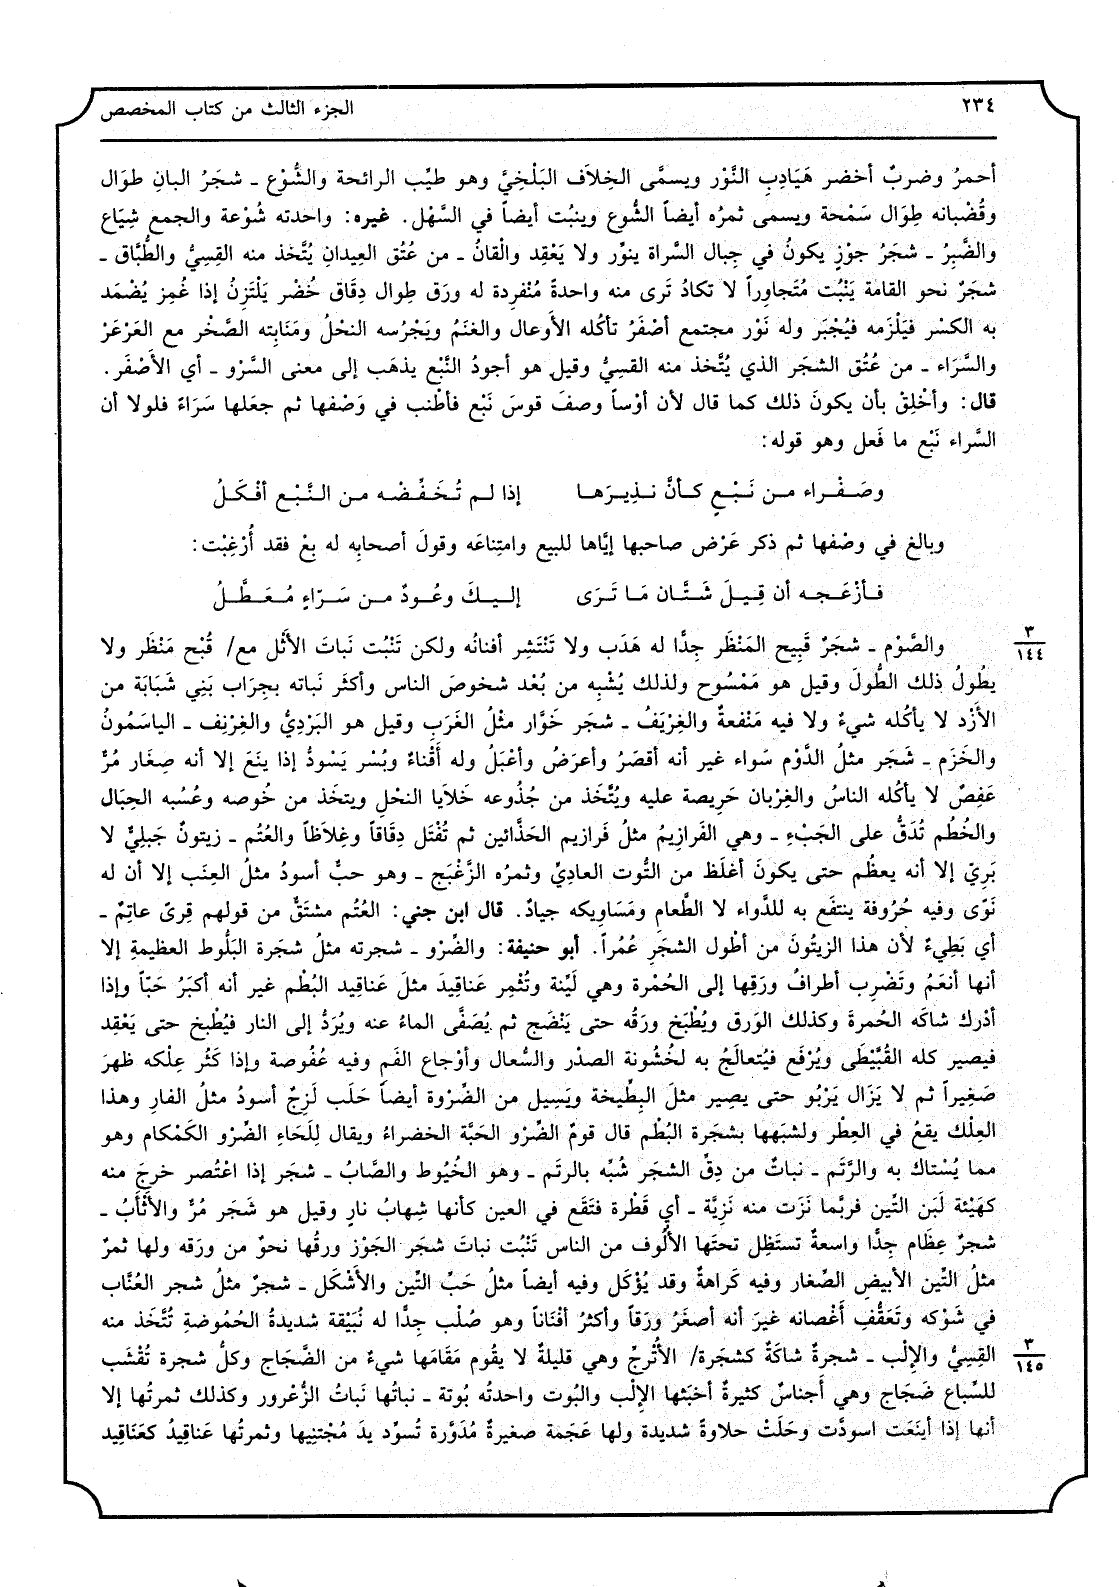 ٢٣٤
الجزء الثالث من كتاب المخصص
أحمرُ وضربٌ أخضر هَيَادِبِ النَّوْر ويسمَّى الخِلاَف البَلْخِيَّ وهو طيِّب الرائحة والشُّوْع ـ شجَرُ البانِ طوَال
وقُضْبانه طِوَال سَمْحة ويسمى ثمرُه أيضاً الشُّوع وينبُت أيضاً في السَّهْل. غيره: واحدته شُوْعة والجمع شِيَاع
والضَّبِرُ ـ شجَرُ جوْزٍ يكونُ في جبال السَّراة ينوِّر ولا يَعْقِد والْقانُ ـ من عُتُق العِيدانِ يُتَّخذ منه القِسِيُّ والطُّبَّاق ـ
شجَرٌ نحو القامة يَنْبُت مُتَجاوِراً لا تكادُ تَرى منه واحدةً مُنْفردة له ورَق طِوال دِقَاق خُضْر يَلْتَزِنُ إذا غُمِز يُضْمَد
به الكسْر فيَلْزمه فيُجْبَر وله نَوْر مجتمع أصْفَرُ تأكله الأَوعال والغنَمُ ويَجْرُسه النحْلُ ومنَابِته الصَّخْر مع العَرْعَرْ
والسَّراء ـ من عُتُق الشجَر الذي يُتَّخذ منه القسِيُّ وقيل هو أجودُ النَّبْع يذهَب إلى معنى السَّرْو ـ أي الأَصْفَر.
قال: وأخْلِقْ بأن يكونَ ذلك كما قال لأن أوْساً وصفَ قوسَ نَبْع فأطْنب في وَصْفها ثم جعَلها سَرَاءً فلولا أن
السَّراء نَبْع ما فَعل وهو قوله:
وصَـفْـراء مـن نَـبْـعٍ كـأنَّ نـذِيـرَهـا إذا لـم تُـخَـفِّـضْـه مـن الـنَّـبْـع أفْـكَـلُ
وبالغ في وصْفها ثم ذكر عَرْض صاحبها إيَّاها للبيع وامتِناعَه وقولَ أصحابِه له بعْ فقد أُرْغِبْت:
فـأزْعَـجـه أن قِـيـلَ شَـتَّـان مَـا تَـرَى إلـيـكَ وعُـودٌ مـن سَـرَاءٍ مُـعَـطَّـلُ
والصَّوْم ـ شجَرٌ قَبِيح المَنْظَر جِدًّا له هَدَب ولا تَنْتَشِر أفنانُه ولكن تَنْبُت نَباتَ الأَثْل مع/ قُبْح مَنْظَر ولا
٣
١٤٤
يطُولُ ذلك الطُّولَ وقيل هو مَمْسُوح ولذلك يُشْبِه من بُعْد شخوصَ الناس وأكثَر نَباته بجِرَاب بَنِي شَبَابَة من
الأَزْد لا يأكُله شيءٌ ولا فيه مَنْفعةٌ والغِرْيَفُ ـ شجَر خَوَّار مثْلُ الغَرَبِ وقيل هو البَرْدِيُّ والغِرْنِف ـ الياسَمُونُ
والخَزَم ـ شَجَر مثلُ الدَّوْم سَواء غير أنه أقصَرُ وأعرَضُ وأعْبَلُ وله أقْناءٌ وبُسْر يَسْودُّ إذا ينَعَ إلا أنه صِغَار مُرٌّ
عَفِصٌ لا يأكُله الناسُ والغِرْبان حَرِيصة عليه ويُتَّخذ من جُذُوعه خَلاَيا النحْلِ ويتخَذ من خُوصه وعُسُبه الحِبَال
والخُطُم تُدَقُّ على الجَبْءِ ـ وهي الفَرازِيمُ مثلُ فَرازيم الحَذَّائين ثم تُفْتَل دِقَاقاً وغِلاَظاً والعُتُم ـ زيتونٌ جَبلِيٌّ لا
بَرِيّ إلا أنه يعظُم حتى يكونَ أغلَظ من التُّوت العادِيِّ وثمرُه الزَّغْبَج ـ وهو حبٌّ أسودُ مثلُ العِنَب إلا أن له
نَوًى وفيه حُرُوفة ينتفَع به للدَّواء لا الطَّعامِ ومَسَاوِيكه جيادٌ. قال ابن جني: العُتُم مشتَقٌّ من قولهم قِرىً عاتِمٌ ـ
أي بَطِيءٌ لأن هذا الزيتُونَ من أطْول الشجَرِ عُمُراً. أبو حنيفة: والضِّرْو ـ شجرته مثلُ شجَرة البَلُّوط العظيمةِ إلا
أنها أنعَمُ وتَضْرِب أطرافُ ورَقِها إلى الحُمْرة وهي لَيِّنة وتُثْمِر عَناقِيدَ مثلَ عَناقِيد البُطْم غير أنه أكبَرُ حَبّاً وإذا
أدْرك شاكَه الحُمرةَ وكذلك الوَرق ويُطْبَخ ورَقُه حتى يَنْضَج ثم يُصَفَّى الماءُ عنه ويُرَدُّ إلى النار فيُطْبخ حتى يَعْقِد
فيصير كله القُبَّيْطَى ويُرْفَع فيُتعالَجُ به لخُشُونة الصدْر والسُّعال وأوْجاع الفَم وفيه عفُوصة وإذا كَثُر عِلْكه ظهرَ
صَغِيراً ثم لا يَزَال يَرْبُو حتى يصِير مثلَ البِطِّيخة ويَسِيل من الضِّرْوة أيضاً حَلَب لَزِجٌ أسودُ مثلُ القارِ وهذا
العِلْك يقعُ في العِطْر ولشبَهِها بشجَرة البُطْم قال قومٌ الضِّرْو الحَبَّة الخضراءُ ويقال لِلَحَاءِ الضِّرْو الكَمْكام وهو
مما يُسْتاك به والرَّتَم ـ نباتٌ من دِقِّ الشجَر شُبِّه بالرتَم ـ وهو الخُيُوط والصَّابُ ـ شجَر إذا اعْتُصر خرجَ منه
كهَيْئة لَبَن التِّين فربَّما نَزَت منه نَزِيَّة ـ أي قَطْرة فتَقَع في العين كأنها شِهابُ نارٍ وقيل هو شَجَر مُرٌّ والأَثْأَبُ ـ
شجرٌ عِظَام جِدًّا واسعةٌ تستَظِل تحتَها الأُلُوف من الناس تَنْبُت نباتَ شجَر الجَوْز ورقُها نحوٌ من ورَقه ولها ثمرٌ
مثلُ التِّين الأبيضِ الصِّغار وفيه كَراهةٌ وقد يُؤْكَل وفيه أيضاً مثلُ حَبِّ التِّين والأَشْكَل ـ شجرٌ مثلُ شجر العُنَّاب
في شَوْكه وتَعَقُّف أَغْصانه غيرَ أنه أصغَرُ ورَقاً وأكثرُ أفْنَاناً وهو صُلْب جِدًّا له نُبَيْقة شديدةُ الحُمُوضةِ تُتَّخَذ منه
القِسِيُّ والإِلْب ـ شجرةٌ شاكَةٌ كشجَرة/ الأُتْرجِّ وهي قليلةٌ لا يقُوم مَقَامَها شيءٌ من الضَّجَاج وكلُّ شجرة تُقْشَب
٣
١٤٥
للسِّباع ضَجَاج وهي أَجناسٌ كثيرةٌ أخبَثها الإِلْب والبُوت واحدتُه بُوتة ـ نباتُها نَباتُ الزُّعْرور وكذلك ثمرتُها إلا
أنها إذا أينَعَت اسودَّت وحَلَتْ حلاوةً شديدة ولها عَجَمة صغيرةٌ مُدَوَّرة تسوِّد يدَ مُجْتنِيها وثمرتُها عَناقِيدُ كعَنَاقِيد